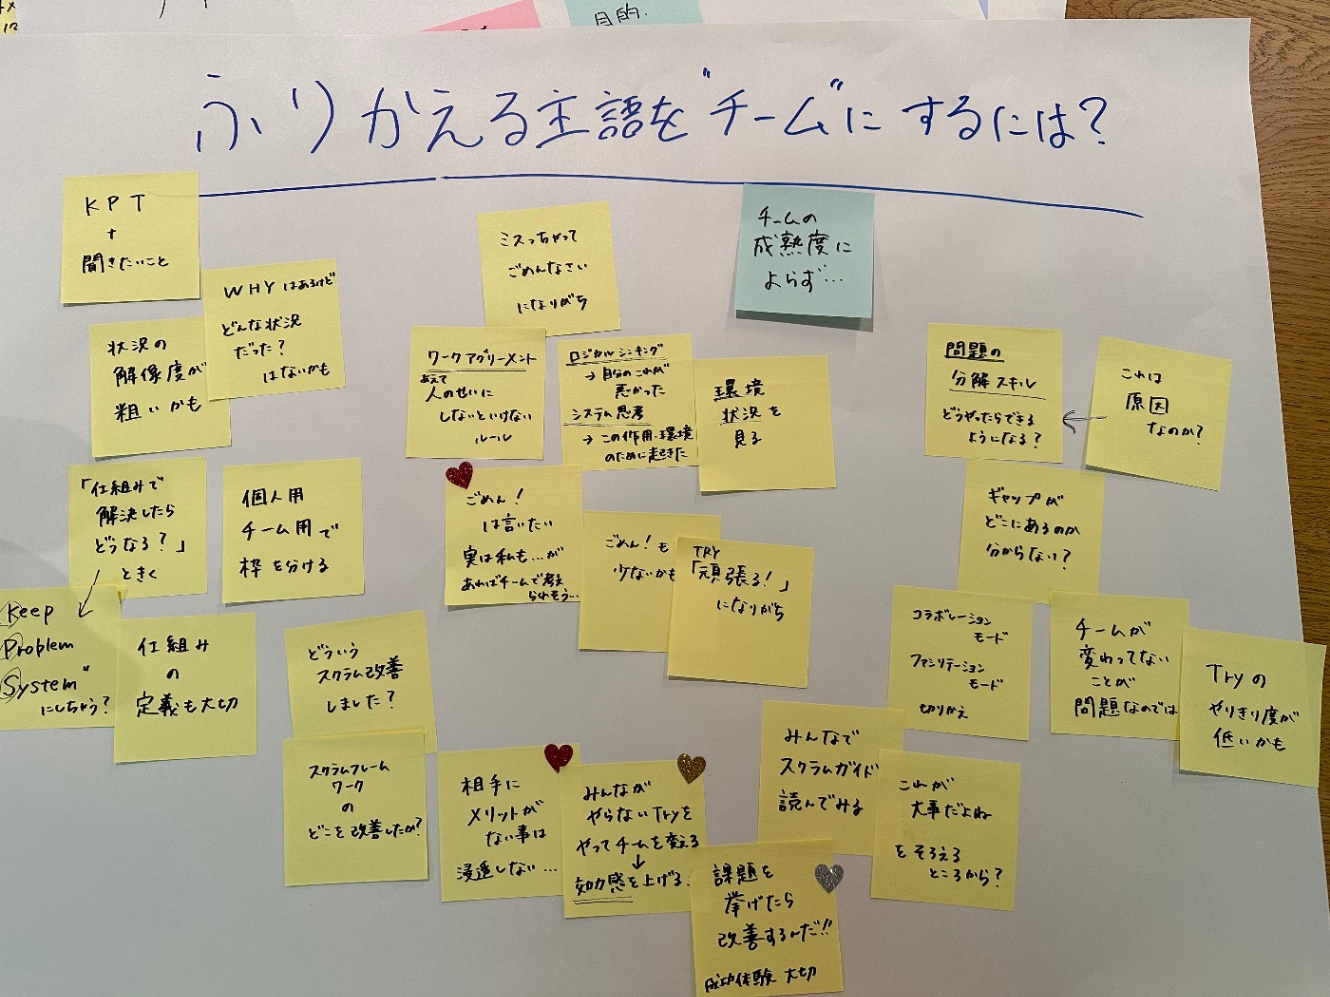 目的.
ふりかえる主語を"チーム"にするには?
KPT
+
聞きたいこと
WHYはあるけど
どんな状況
だった?
はないかも
状況の
解像度が
粗いかも
ミスっちゃって
ごめんなさい
になりがち
チームの
成熟度に
よらず…
ワークアグリーメント
あえて
人のせいに
しないといけない
ルール
ロジカルシンキング
→自分のこれが
悪かった
システム思考
→この作用・環境
のために起きた
環境
状況を
見る
問題の
分解スキル
どうやったらできる
ようになる?
これは
原因
なのか?
「仕組みで
解決したら
どうなる?」
ときく
個人用
チーム用で
枠を分ける
ごめん!
は言いたい
実は私も…が
あればチームで考え
られそう…
ごめん!も
少ないかも
TRY
「頑張る!」
になりがち
ギャップが
どこにあるのか
分からない?
Keep
Problem
System"
にしちゃう?
仕組み
の
定義も大切
どういう
スクラム改善
しました?
コラボレーション
モード
ファシリテーション
モード
切りかえ
チームが
変わってない
ことが
問題なのでは
Tryの
やりきり度が
低いかも
スクラムフレーム
ワーク
の
どこを改善したか?
相手に
メリットが
ない事は
浸透しない…
みんなが
やらないTryを
やってチームを変える
↓
効力感を上げる.
みんなで
スクラムガイド
読んでみる
これが
大事だよね
をそろえる
ところから?
課題を
挙げたら
改善するんだ!!
成功体験 大切